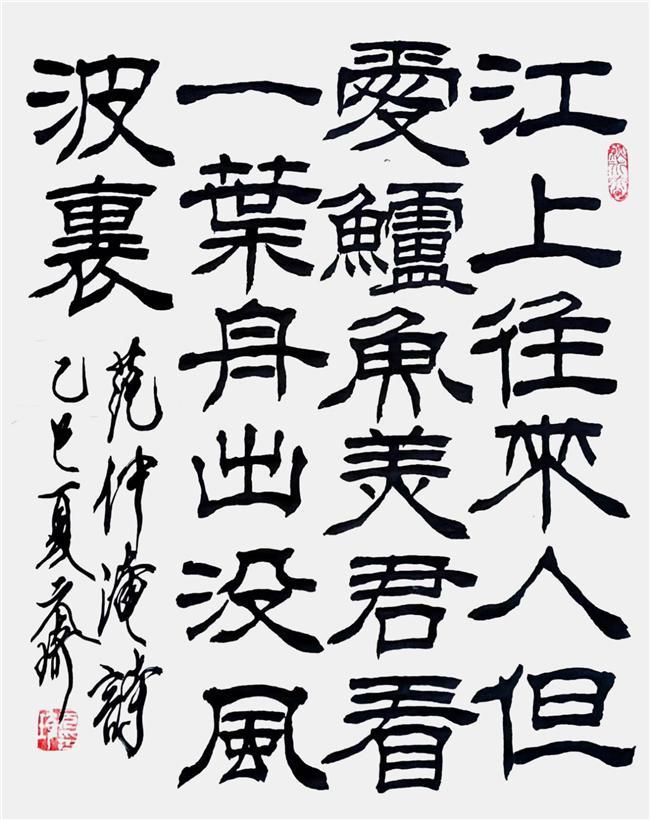 江上往來人但
愛鱸魚美君看
一葉舟出没風
波裏
范仲淹詩
乙巳夏